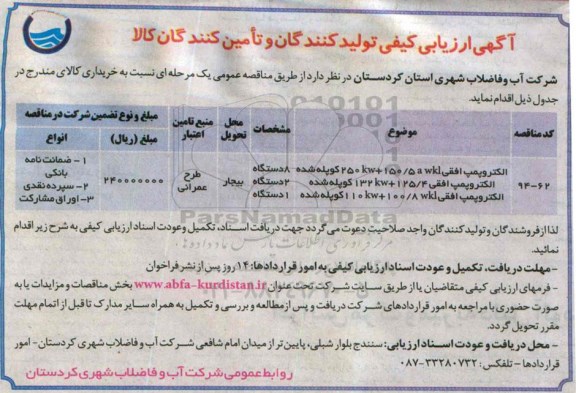 آگهی ارزیابی کیفی تولید کنندگان و تأمین کنندگان کالا
شرکت آب و فاضلاب شهری استان کردستان در نظر دارد از طریق مناقصه عمومی یک مرحله ای نسبت به خریداری کالای مندرج در
جدول ذیل اقدام نماید.
کد مناقصه
موضوع
مشخصات
محل تحویل
منبع تامین اعتبار
مبلغ و نوع تضمین شرکت در مناقصه
مبلغ (ریال)
انواع
۹۴-۶۲
الکتروپمپ افقی wkl ۱۵۰/۵+۲۵۰ kw کوپله شده
الکتروپمپ افقی ۱۲۵/۴+۱۳۲ kw کوپله شده
الکتروپمپ افقی wkl ۱۰۰/۸+۱۱۰ kw کوپله شده
۸ دستگاه
۲ دستگاه
۱ دستگاه
بیجار
طرح عمرانی
۲۴۰۰۰۰۰۰۰
۱- ضمانت نامه
بانکی
۲- سپرده نقدی
۳- اوراق مشارکت
ParsNamadData
لذا از فروشندگان و تولید کنندگان واجد صلاحیت دعوت می گردد جهت دریافت اسناد، تکمیل و عودت اسناد ارزیابی کیفی به شرح زیر اقدام
نمائید.
- مهلت دریافت، تکمیل و عودت اسناد ارزیابی کیفی به امور قراردادها: ۱۴ روز پس از نشر فراخوان
- فرمهای ارزیابی کیفی متقاضیان یا از طریق سایت شرکت تحت عنوان www.abfa-kurdistan.ir بخش مناقصات و مزایدات یا به
صورت حضوری با مراجعه به امور قراردادهای شرکت دریافت و پس از مطالعه و بررسی و تکمیل به همراه سایر مدارک تا قبل از اتمام مهلت
مقرر تحویل گردد.
- محل دریافت و عودت اسناد ارزیابی: سنندج بلوار شبلی، پایین تر از میدان امام شافعی شرکت آب و فاضلاب شهری کردستان - امور
قراردادها - تلفکس: ۳۳۲۸۰۷۳۲-۰۸۷
روابط عمومی شرکت آب و فاضلاب شهری کردستان